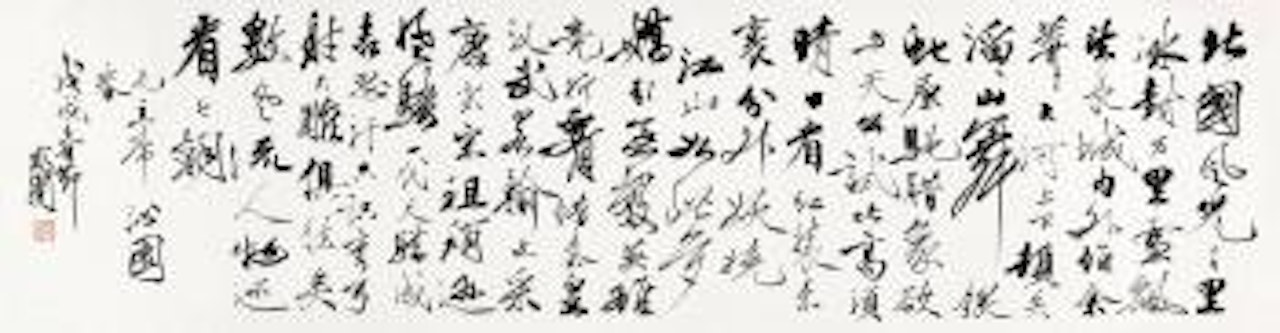 北國風光千里
冰封万里雪飄
望長城内外惟余
莽々大河上下頓失
滔々山舞
蛇原馳蜡象欲
与天公試比高須
晴日看红装素
裹分外妖嬈
江山如此多
嬌引無數英雄
竞折腰惜秦皇
汉武略输文采
唐宗宋祖稍遜
風騷一代天驕成
吉思汗只识弯弓
射大雕俱往矣
數風流人物还
看今朝
毛主席 沁園
春
戊戌春節